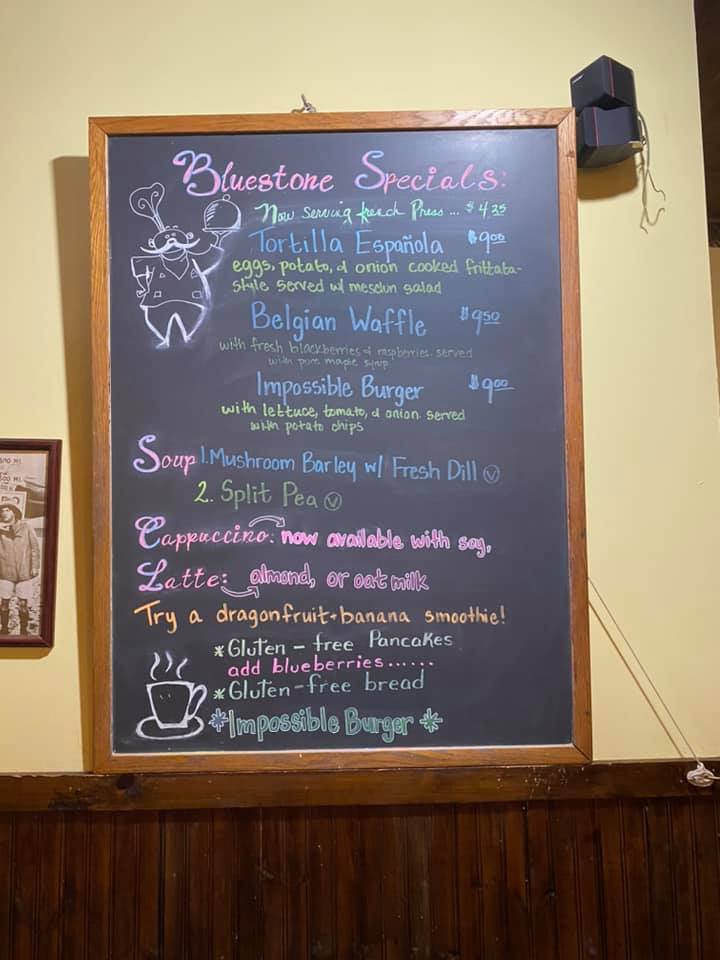 Bluestone Specials:
Now serving french Press ... $4.25
Tortilla Española $9.00
eggs, potato, & onion cooked frittata-
style served w/ mesclun salad
Belgian Waffle $9.50
with fresh blackberries & raspberries. served
with pure maple syrup
Impossible Burger $9.00
with lettuce, tomato, & onion served
with potato chips
Soup 1. Mushroom Barley w/ Fresh Dill Ⓥ
2. Split Pea Ⓥ
Cappuccino: now available with soy,
Latte: almond, or oat milk
Try a dragonfruit-banana smoothie!
*Gluten-free Pancakes
add blueberries......
*Gluten-free bread
*Impossible Burger*